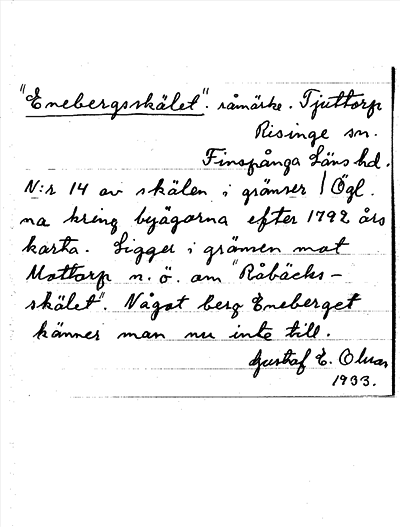 "Enebergsskälet". råmärke. Tjuttorp
Risinge sn.
Finspånga Läns hd.
N:r 14 av skälen i gränser / Ögl.
na kring byägorna efter 1792 års
karta. Ligger i gränsen mot
Mottorp n. ö. om "Råbäcks-
skälet". Något berg Eneberget
känner man nu inte till.
Gustaf E.
1933.